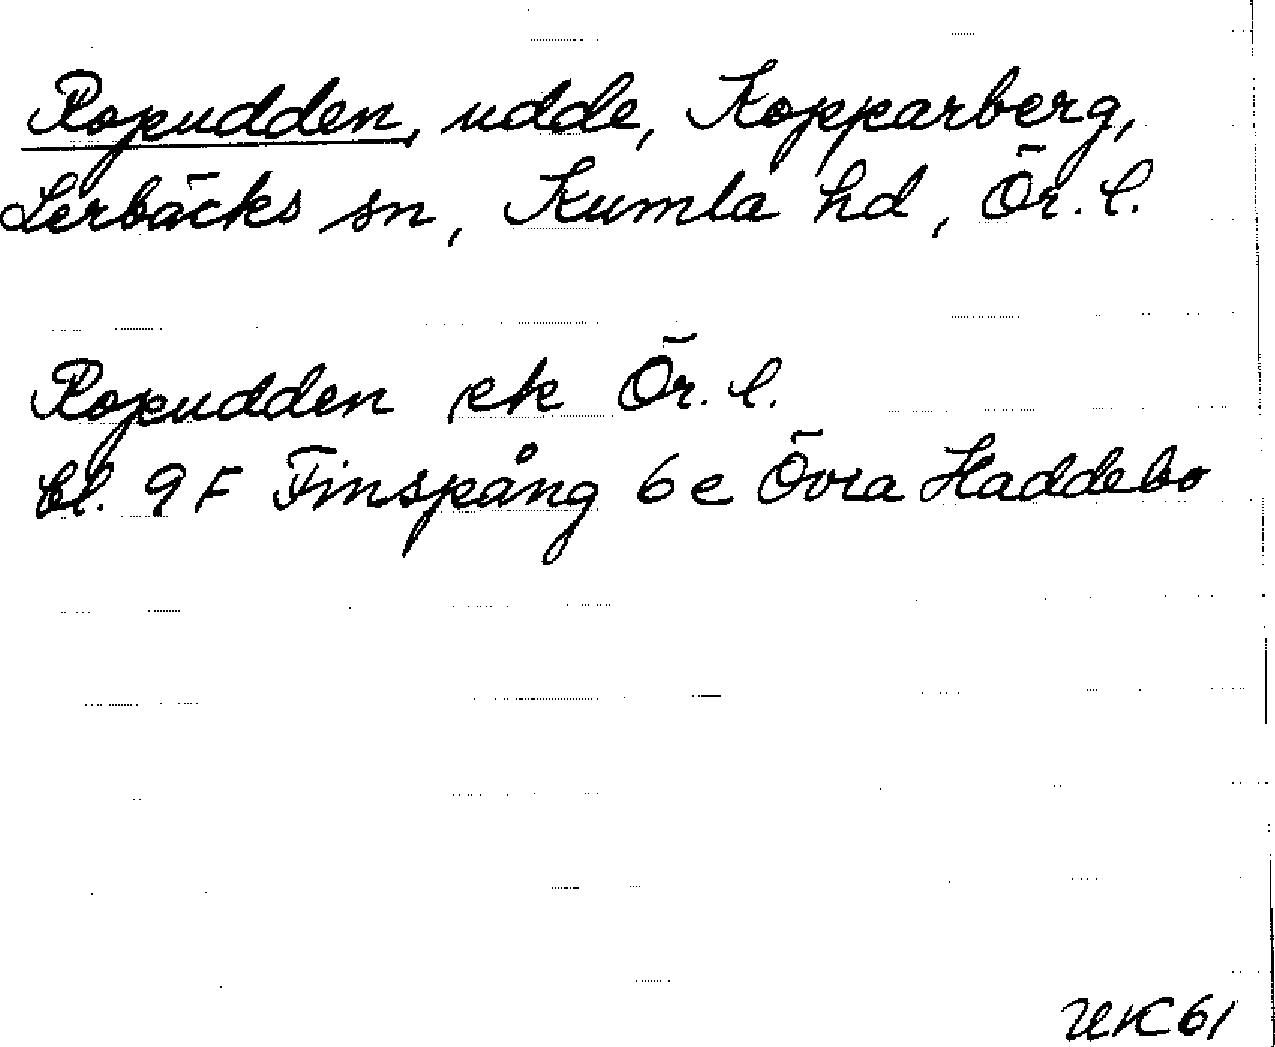 Ropudden, udde, Kopparberg,
Lerbäcks sn, Kumla hd, Ör. l.
Ropudden ek Ör. l.
bl. 9 F Finspång 6 e Övra Haddebo
UK 61